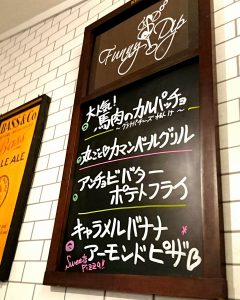 Funny Dip
大人気!
馬肉のカルパッチョ
丸ごとカマンベールグリル
アンチョビバター
ポテトフライ
キャラメルバナナ
アーモンドピザ
Sweets
Pizza!
BASS & Co
PALE ALE